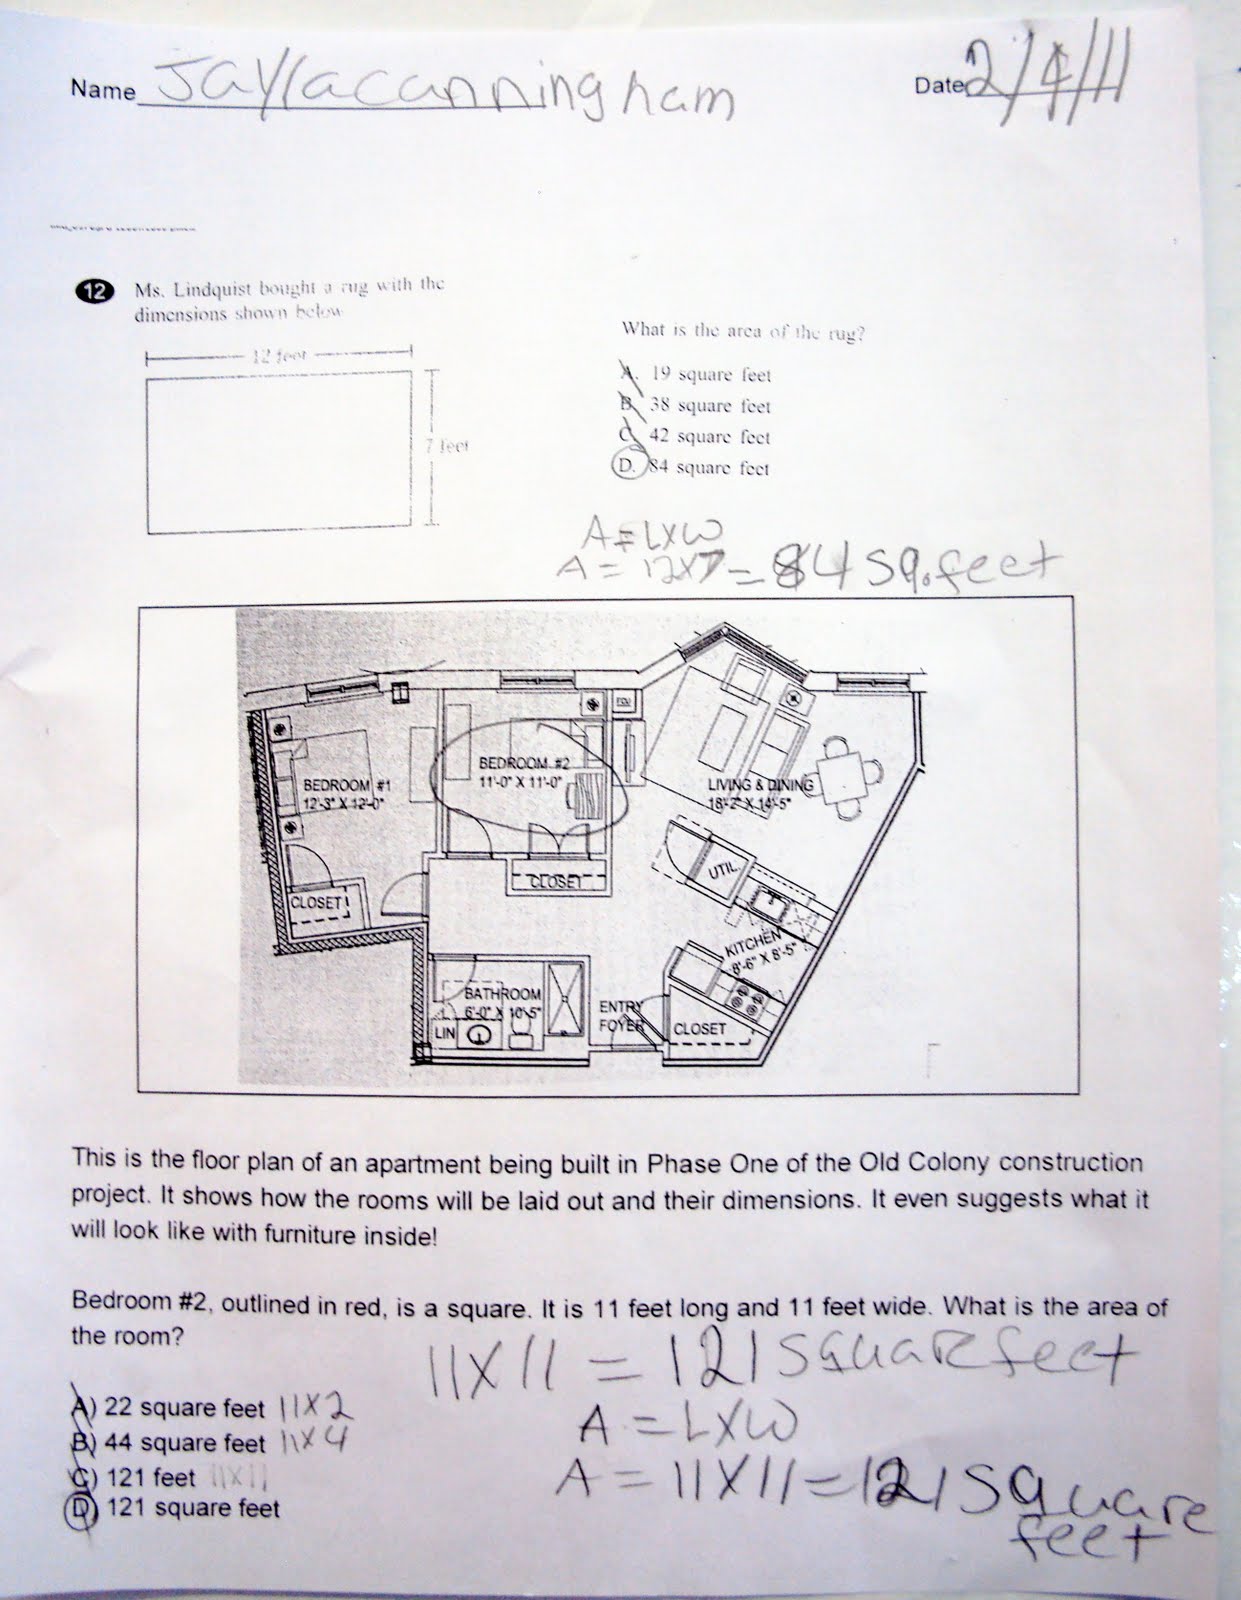 Name Jayla canningham Date 2/4/11
12 Ms. Lindquist bought a rug with the
dimensions shown below
12 feet
7 feet
What is the area of the rug?
A. 19 square feet
B. 38 square feet
C. 42 square feet
D. 84 square feet
A = L X W
A = 12 X 7 = 84 sq. feet
BEDROOM #1
12'-3" X 12'-0"
CLOSET
BEDROOM #2
11'-0" X 11'-0"
CLOSET
LIVING & DINING
18'-2" X 14'-5"
UTIL.
KITCHEN
8'-6" X 8'-5"
BATHROOM
6'-0" X 10'-5"
LIN
ENTRY
FOYER
CLOSET
This is the floor plan of an apartment being built in Phase One of the Old Colony construction
project. It shows how the rooms will be laid out and their dimensions. It even suggests what it
will look like with furniture inside!
Bedroom #2, outlined in red, is a square. It is 11 feet long and 11 feet wide. What is the area of
the room?
11 X 11 = 121 square feet
A) 22 square feet 11 X 2
B) 44 square feet 11 X 4
C) 121 feet 11 X 11
D) 121 square feet
A = L X W
A = 11 X 11 = 121 square
feet